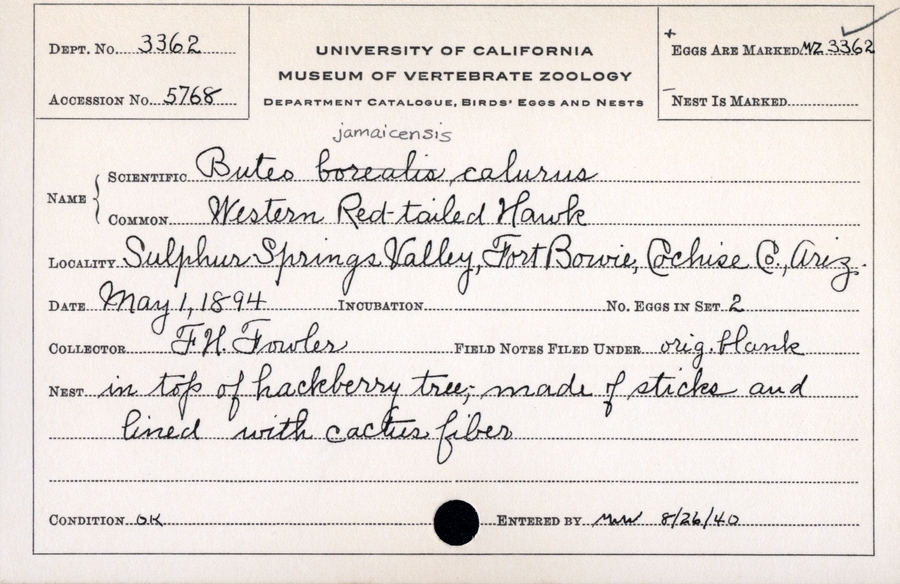 DEPT. No. 3362
ACCESSION No. 5768
UNIVERSITY OF CALIFORNIA
MUSEUM OF VERTEBRATE ZOOLOGY
DEPARTMENT CATALOGUE, BIRDS' EGGS AND NESTS
+ EGGS ARE MARKED MVZ 3362
– NEST IS MARKED
jamaicensis
NAME
SCIENTIFIC Buteo borealis calurus
COMMON Western Red-tailed Hawk
LOCALITY Sulphur Springs Valley, Fort Bowie, Cochise Co., Ariz.
DATE May 1, 1894 INCUBATION No. EGGS IN SET 2
COLLECTOR F.H. Fowler FIELD NOTES FILED UNDER orig. blank
NEST in top of hackberry tree; made of sticks and
lined with cactus fiber
CONDITION OK ENTERED BY 8/26/40